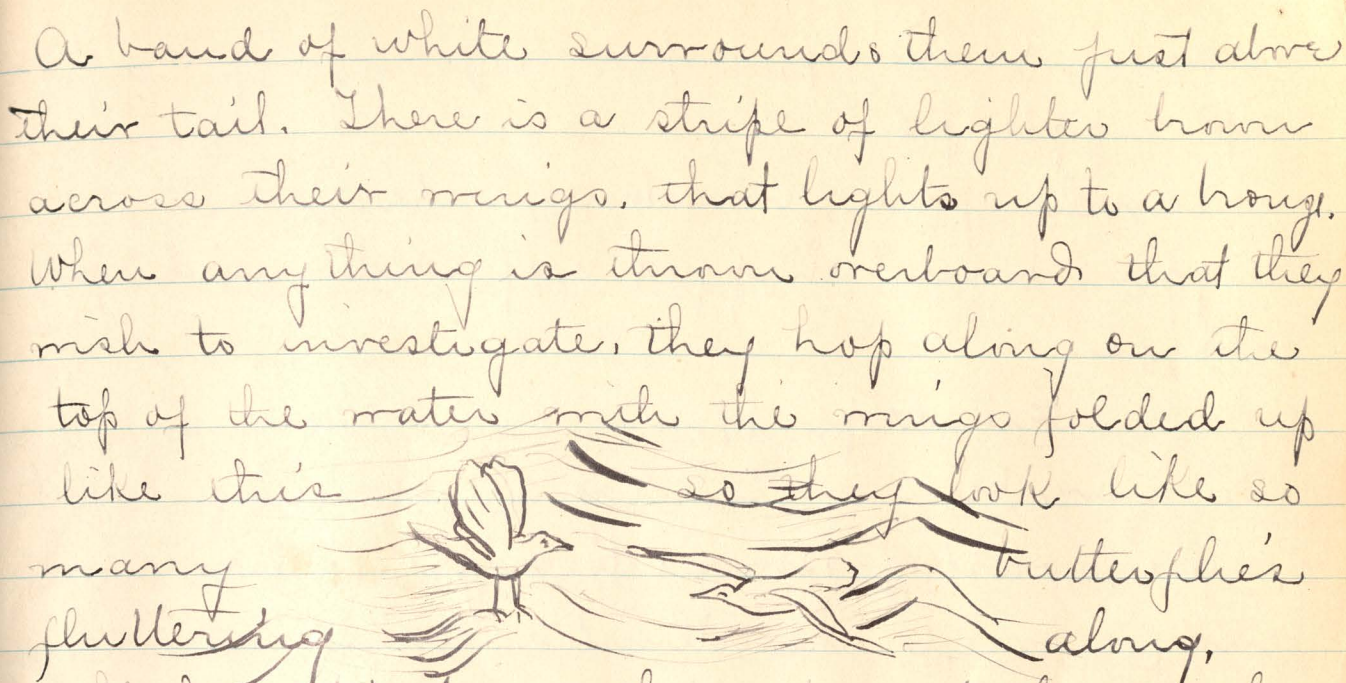 A band of white surrounds them just above
their tail. There is a stripe of lighter brown
across their wings, that lights up to a
When anything is thrown overboard that they
wish to investigate, they hop along on the
top of the water with the wings folded up
like this so they look like so
many butterflie's
fluttering along,